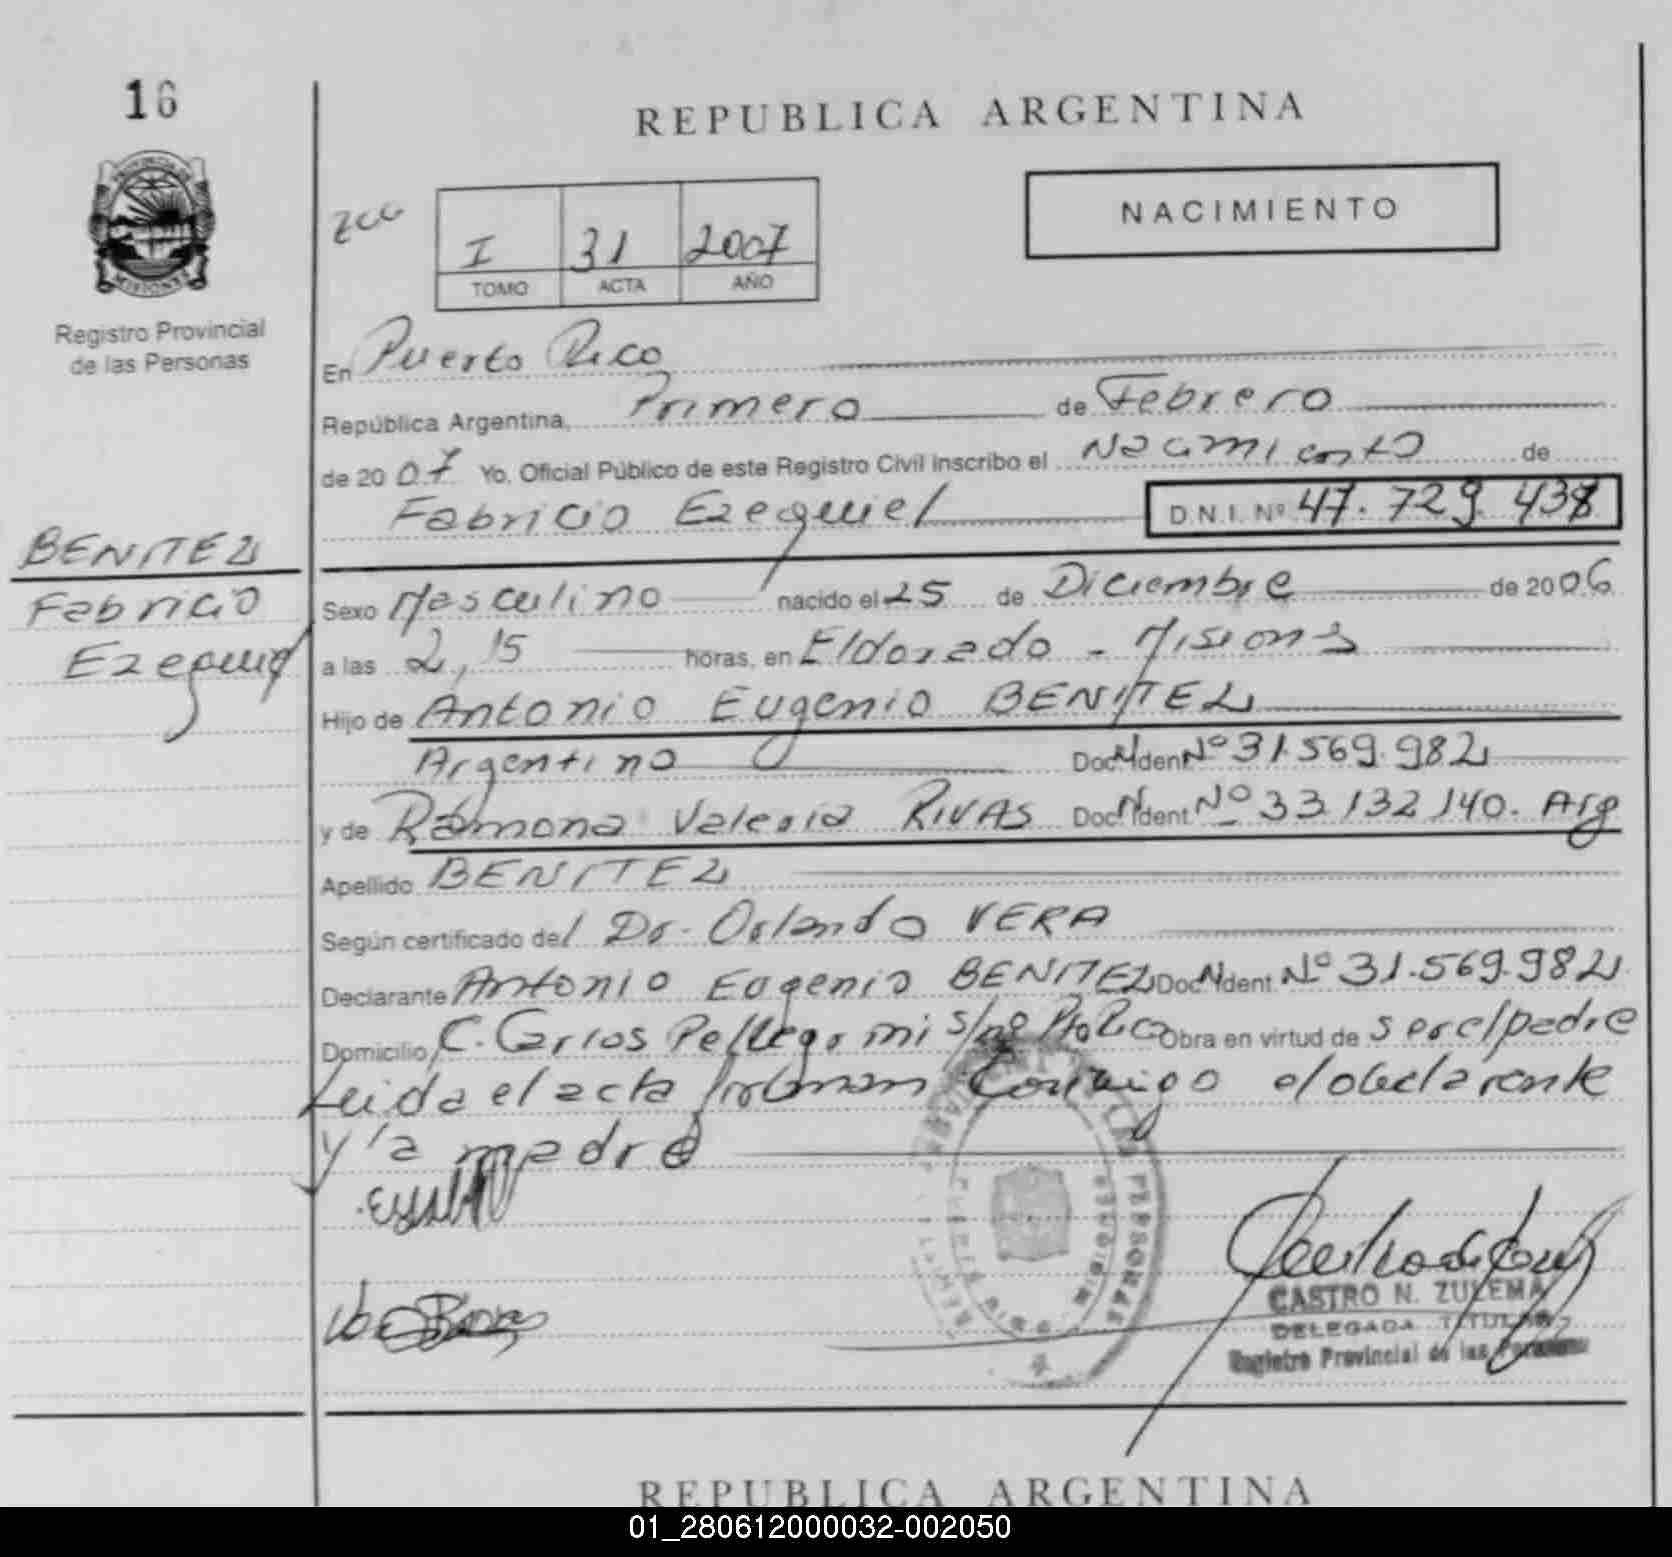 16
REPUBLICA ARGENTINA
NACIMIENTO
I 31 2007
TOMO ACTA AÑO
Registro Provincial
de las Personas
En Puerto Rico
República Argentina, Primero de Febrero
de 2007 Yo, Oficial Público de este Registro Civil inscribo el Nacimiento de
Fabricio Ezequiel D.N.I. Nº 47.729.438
BENITEZ
Fabricio
Ezequiel
Sexo Masculino nacido el 25 de Diciembre de 2006
a las 2,15 horas, en Eldorado - Misiones
Hijo de Antonio Eugenio BENITEZ
Argentino Doc. Ident. Nº 31.569.982
y de Ramona Valeria RIVAS Doc. Ident. Nº 33.132.140. Arg
Apellido BENITEZ
Según certificado del Dr. Orlando VERA
Declarante Antonio Eugenio BENITEZ Doc. Ident. Nº 31.569.982
Domicilio C. Carlos Pellegrini s/nº Pto Rico Obra en virtud de ser el padre
Leida el acta firman conmigo el declarante
y la madre
CASTRO N. ZULEMA
DELEGADA TITULAR
Registro Provincial de las Personas
REPUBLICA ARGENTINA
01_280612000032-002050